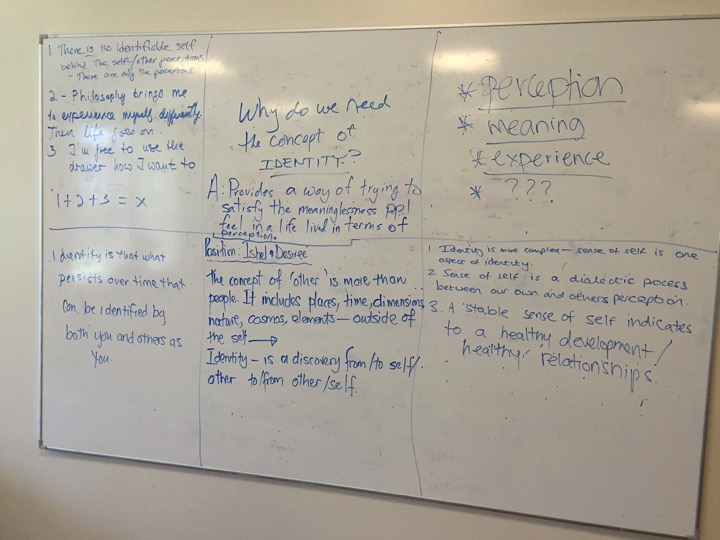 1. There is no identifiable self
behind the self/other perceptions
- There are only the perceptions
2 - Philosophy brings me
to experience myself differently.
Then life goes on.
3 I'm free to use the
drawer how I want to
1+2+3 = x
Why do we need
the concept of
IDENTITY?
A: Provides a way of trying to
satisfy the meaninglessness ppl
feel in a life lived in terms of
perception.
* perception
* meaning
* experience
* ???
Identity is that what
persists over time that
can be identified by
both you and others as
you.
Position: Ishel & Desiree
The concept of 'other' is more than
people. It includes places, time, dimensions
nature, cosmos, elements — outside of
the self →
Identity - is a discovery from/to self/
other to/from other/self.
1. Identity is more complex - sense of self is one
aspect of identity.
2 Sense of self is a dialectic process
between our own and others perception.
3. A stable sense of self indicates
to a healthy development/
healthy relationships.